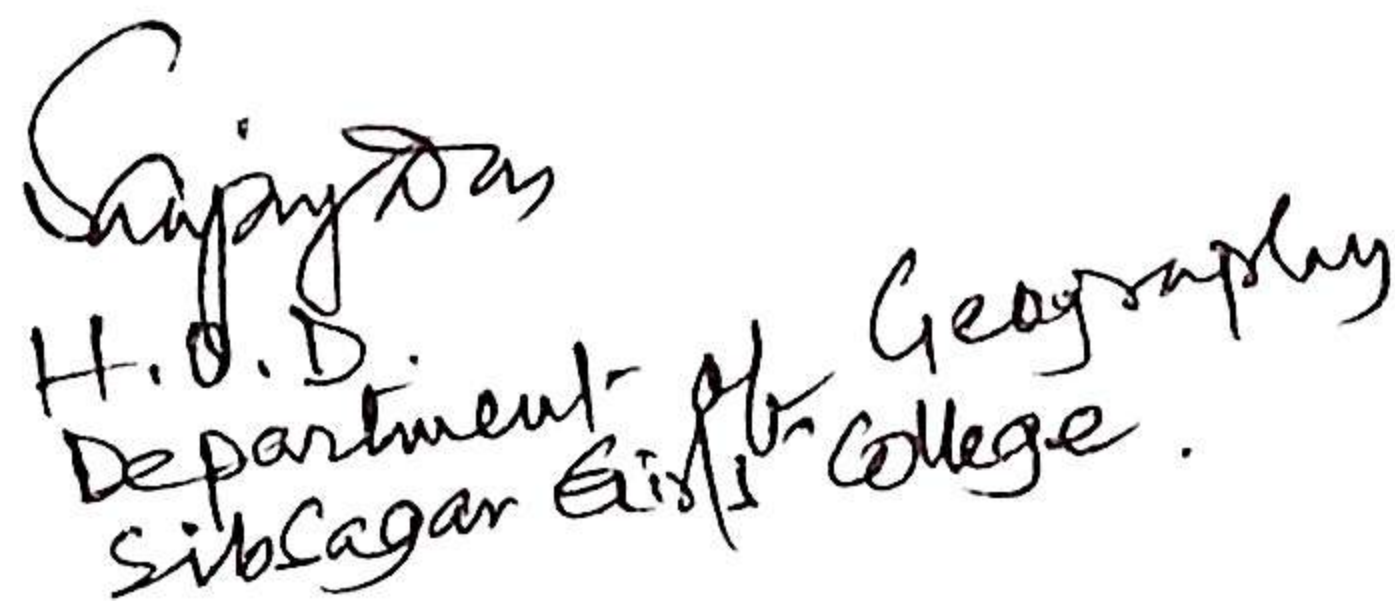 Sanjay Das
H.O.D.
Department of Geography
Sibsagar Girls College.